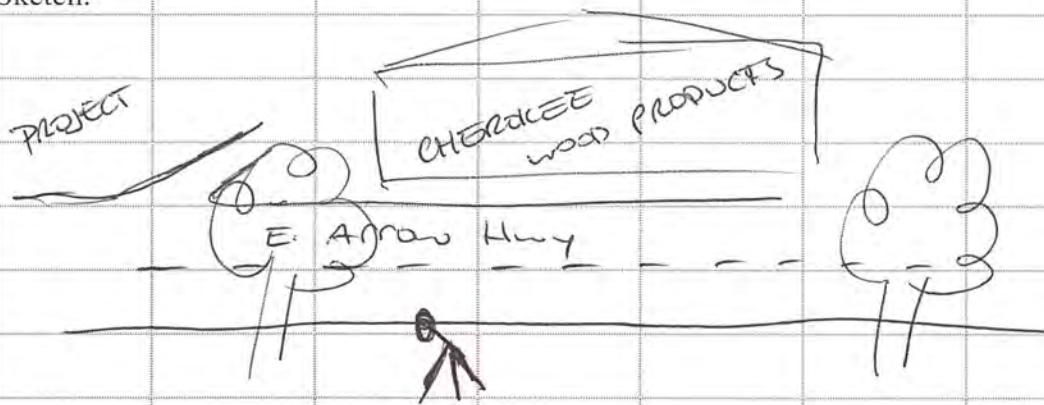 Sketch:
PROJECT
CHEROKEE
WOOD PRODUCTS
E. Arrow Hwy